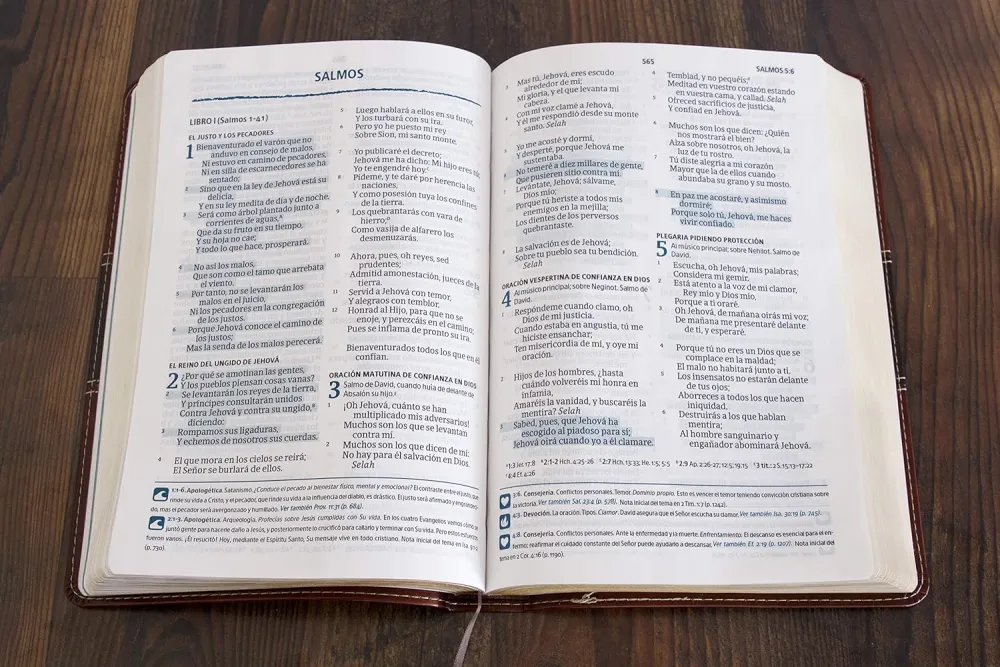 SALMOS
LIBRO I (Salmos 1-41)
EL JUSTO Y LOS PECADORES
1 Bienaventurado el varón que no
anduvo en consejo de malos,
Ni estuvo en camino de pecadores,
Ni en silla de escarnecedores se ha
sentado;
2 Sino que en la ley de Jehová está su
delicia,
Y en su ley medita de día y de noche.
3 Será como árbol plantado junto a
corrientes de aguas,
Que da su fruto en su tiempo,
Y su hoja no cae;
Y todo lo que hace, prosperará.
4 No así los malos,
Que son como el tamo que arrebata
el viento.
5 Por tanto, no se levantarán los
malos en el juicio,
Ni los pecadores en la congregación
de los justos.
6 Porque Jehová conoce el camino de
los justos;
Mas la senda de los malos perecerá.
EL REINO DEL UNGIDO DE JEHOVÁ
2 ¿Por qué se amotinan las gentes,
Y los pueblos piensan cosas vanas?
2 Se levantarán los reyes de la tierra,
Y príncipes consultarán unidos
Contra Jehová y contra su ungido,
diciendo:
3 Rompamos sus ligaduras,
Y echemos de nosotros sus cuerdas.
4 El que mora en los cielos se reirá;
El Señor se burlará de ellos.
5 Luego hablará a ellos en su furor,
Y los turbará con su ira.
6 Pero yo he puesto mi rey
Sobre Sion, mi santo monte.
7 Yo publicaré el decreto;
Jehová me ha dicho: Mi hijo eres tú;
Yo te engendré hoy.
8 Pídeme, y te daré por herencia las
naciones,
Y como posesión tuya los confines
de la tierra.
9 Los quebrantarás con vara de
hierro;
Como vasija de alfarero los
desmenuzarás.
10 Ahora, pues, oh reyes, sed
prudentes;
Admitid amonestación, jueces de la
tierra.
11 Servid a Jehová con temor,
Y alegraos con temblor.
12 Honrad al Hijo, para que no se
enoje, y perezcáis en el camino;
Pues se inflama de pronto su ira.
Bienaventurados todos los que en él
confían.
ORACIÓN MATUTINA DE CONFIANZA EN DIOS
3 Salmo de David, cuando huía de delante de
Absalón su hijo.
1 ¡Oh Jehová, cuánto se han
multiplicado mis adversarios!
Muchos son los que se levantan
contra mí.
2 Muchos son los que dicen de mí:
No hay para él salvación en Dios.
Selah
1:1-6. Apologética. Satanismo. ¿Conduce el pecado al bienestar físico, mental y emocional? El contraste entre el justo, que
rinde su vida a Cristo, y el pecador, que rinde su vida a la influencia del diablo, es drástico. El justo será afirmado y engrandeci-
do, mas el pecador será avergonzado y humillado. Ver también Prov. 11:31 (p. 684).
2:1-3. Apologética. Arqueología. Profecías sobre Jesús cumplidas con Su vida. En los cuatro Evangelios vemos cómo se
juntó gente para hacerle daño a Jesús, y posteriormente lo crucificó para callarlo y terminar con Su vida. Pero estos esfuerzos
fueron vanos. ¡Él resucitó! Hoy, mediante el Espíritu Santo, Su mensaje vive en todo cristiano. Nota inicial del tema en Isa.
(p. 730).
565
SALMOS 5:6
3 Mas tú, Jehová, eres escudo
alrededor de mí;
Mi gloria, y el que levanta mi
cabeza.
4 Con mi voz clamé a Jehová,
Y él me respondió desde su monte
santo. Selah
5 Yo me acosté y dormí,
Y desperté, porque Jehová me
sustentaba.
6 No temeré a diez millares de gente,
Que pusieren sitio contra mí.
7 Levántate, Jehová; sálvame,
Dios mío;
Porque tú heriste a todos mis
enemigos en la mejilla;
Los dientes de los perversos
quebrantaste.
8 La salvación es de Jehová;
Sobre tu pueblo sea tu bendición.
Selah
ORACIÓN VESPERTINA DE CONFIANZA EN DIOS
4 Al músico principal; sobre Neginot. Salmo de
David.
1 Respóndeme cuando clamo, oh
Dios de mi justicia.
Cuando estaba en angustia, tú me
hiciste ensanchar;
Ten misericordia de mí, y oye mi
oración.
2 Hijos de los hombres, ¿hasta
cuándo volveréis mi honra en
infamia,
Amaréis la vanidad, y buscaréis la
mentira? Selah
3 Sabed, pues, que Jehová ha
escogido al piadoso para sí;
Jehová oirá cuando yo a él clamare.
4 Temblad, y no pequéis;
Meditad en vuestro corazón estando
en vuestra cama, y callad. Selah
5 Ofreced sacrificios de justicia,
Y confiad en Jehová.
6 Muchos son los que dicen: ¿Quién
nos mostrará el bien?
Alza sobre nosotros, oh Jehová, la
luz de tu rostro.
7 Tú diste alegría a mi corazón
Mayor que la de ellos cuando
abundaba su grano y su mosto.
8 En paz me acostaré, y asimismo
dormiré;
Porque solo tú, Jehová, me haces
vivir confiado.
PLEGARIA PIDIENDO PROTECCIÓN
5 Al músico principal; sobre Nehilot. Salmo de
David.
1 Escucha, oh Jehová, mis palabras;
Considera mi gemir.
2 Está atento a la voz de mi clamor,
Rey mío y Dios mío,
Porque a ti oraré.
3 Oh Jehová, de mañana oirás mi voz;
De mañana me presentaré delante
de ti, y esperaré.
4 Porque tú no eres un Dios que se
complace en la maldad;
El malo no habitará junto a ti.
5 Los insensatos no estarán delante
de tus ojos;
Aborreces a todos los que hacen
iniquidad.
6 Destruirás a los que hablan
mentira;
Al hombre sanguinario y
engañador abominará Jehová.
1:3 Jer. 17.8 2:1-2 Hch. 4:25-26 2:7 Hch. 13:33; He. 1:5; 5:5 2:9 Ap. 2:26-27; 12:5; 19:15 3 tít.: 2 S. 15:13–17:22
4:4 Ef. 4:26
3:6. Consejería. Conflictos personales. Temor. Dominio propio. Esto es vencer el temor teniendo convicción cristiana sobre
la victoria. Ver también Sal. 23:4 (p. 578). Nota inicial del tema en 2 Tim. 1:7 (p. 1242).
4:3. Devoción. La oración. Tipos. Clamor. David asegura que el Señor escucha su clamor. Ver también Isa. 30:19 (p. 745).
4:8. Consejería. Conflictos personales. Ante la enfermedad y la muerte. Enfrentamiento. El descanso es esencial para el en-
fermo; reafirmar el cuidado constante del Señor puede ayudarlo a descansar. Ver también Ef. 2:19 (p. 1207). Nota inicial del
tema en 2 Cor. 4:16 (p. 1190).